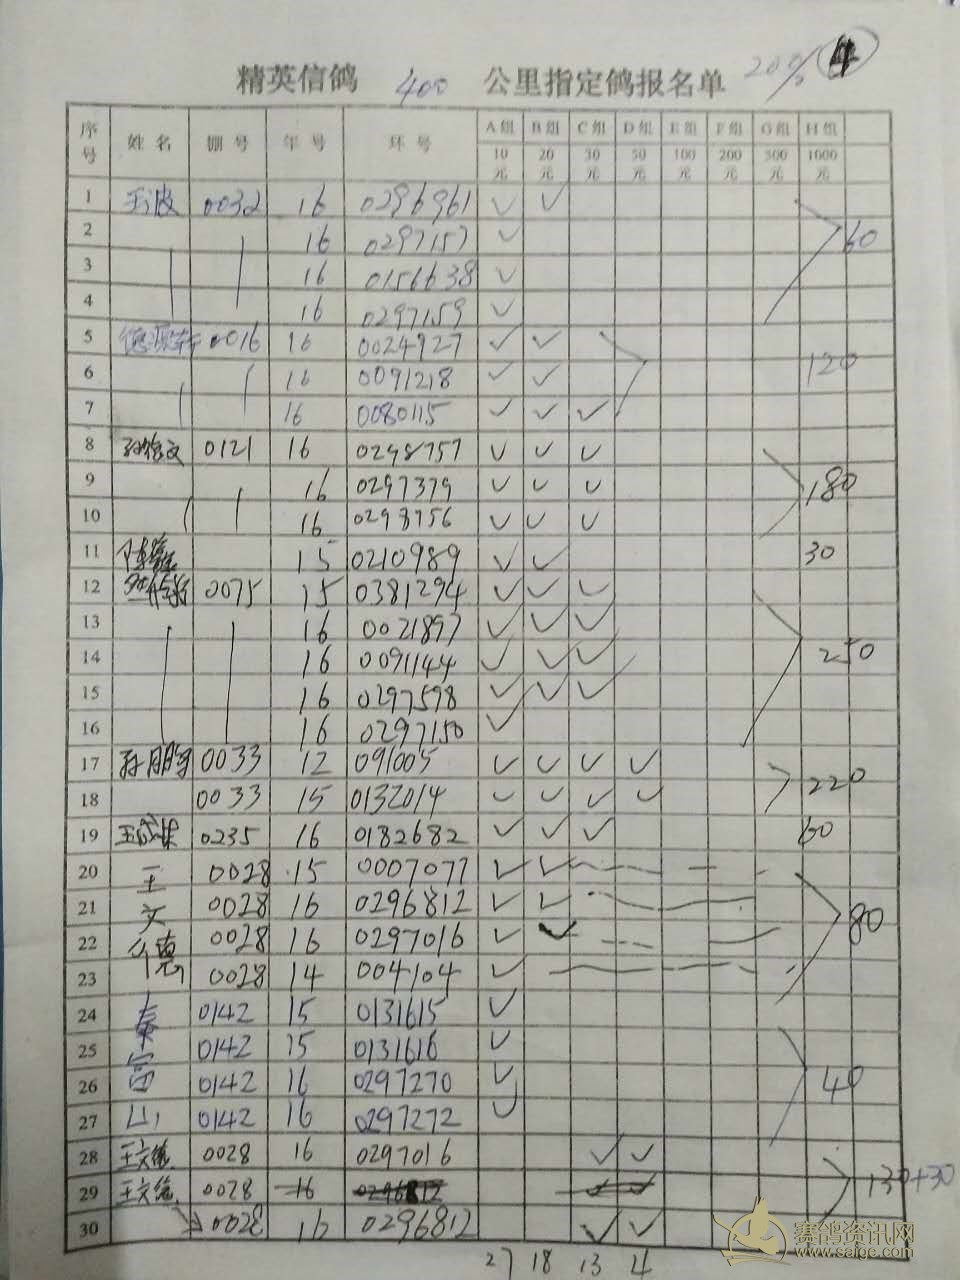 精英信鸽 400 公里指定鸽报名单
序号 姓名 棚号 年号 环号 A组 B组 C组 D组 E组 F组 G组 H组
10元 20元 30元 50元 100元 200元 500元 1000元
1 王波 0032 16 0296961 ✓ ✓
2 16 0297157 ✓ 60
3 16 0156638 ✓
4 16 0297159 ✓
5 0016 16 0024927 ✓ ✓
6 16 0091218 ✓ ✓ 120
7 16 0080115 ✓ ✓ ✓
8 0121 16 0298757 ✓ ✓ ✓
9 16 0297379 ✓ ✓ ✓ 180
10 16 0298756 ✓ ✓ ✓
11 15 0210989 ✓ ✓ 30
12 0075 15 0381294 ✓ ✓ ✓
13 16 0021897 ✓ ✓ ✓
14 16 0091144 ✓ ✓ ✓ 250
15 16 0297598 ✓ ✓ ✓
16 16 0297150 ✓
17 0033 12 091005 ✓ ✓ ✓ ✓
18 0033 15 0132014 ✓ ✓ ✓ ✓ 220
19 0235 16 0182682 ✓ ✓ ✓ 60
20 王 0028 15 0007077 ✓ ✓
21 文 0028 16 0296812 ✓ ✓ 80
22 德 0028 16 0297016 ✓ ✓
23 0028 14 004104 ✓
24 秦 0142 15 0131615 ✓
25 富 0142 15 0131616 ✓
26 0142 16 0297270 ✓ 40
27 山 0142 16 0297272 ✓
28 王文德 0028 16 0297016 ✓ ✓
29 王文德 0028 16 0296812 ✓ ✓ 130+30
30 0028 16 0296812 ✓ ✓
27 18 13 4
赛鸽资讯网
www.saige.com